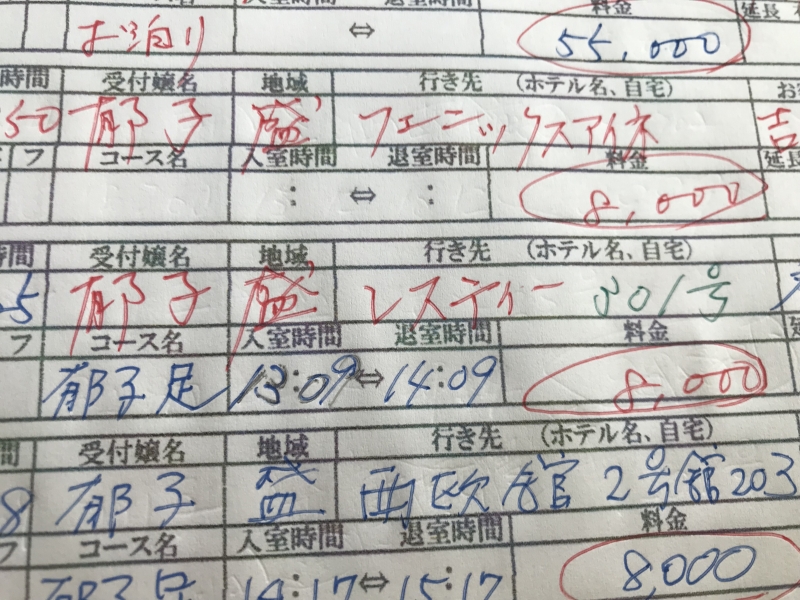 入室時間 退室時間 料金 延長
お泊り ⇔ 55,000
時間 受付嬢名 地域 行き先 (ホテル名、自宅) お
50 郁子 盛 フェニックスアイネ 吉
フ コース名 入室時間 退室時間 料金 延長
: ⇔ : 8,000
時間 受付嬢名 地域 行き先 (ホテル名、自宅)
5 郁子 盛 レスティー 301号
フ コース名 入室時間 退室時間 料金 延
郁子足 13:09⇔14:09 8,000
間 受付嬢名 地域 行き先 (ホテル名、自宅)
8 郁子 盛 西欧館 2号館203
フ コース名 入室時間 退室時間 料金
郁子足 14:17⇔15:17 8,000